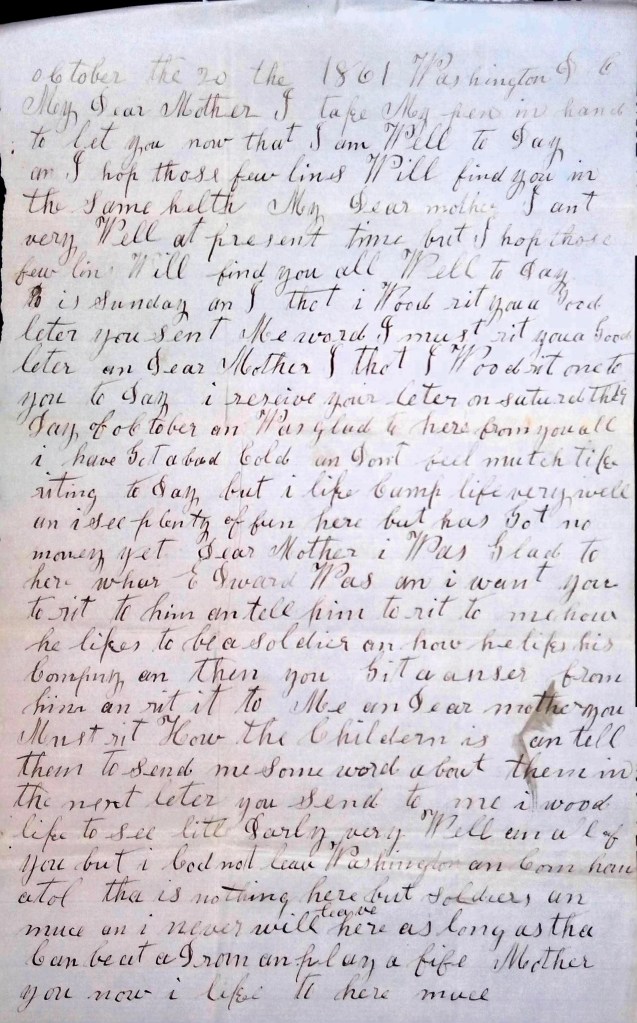 october the 20 the 1861 Washington D C
My Dear Mother I take My pen in hand
to let you now that I am Well to Day
an I hop those few lines Will find you in
the Same helth My Dear mother I ant
very Well at present time but I hop those
few lin Will find you all Well to Day
is Sunday an I thot i Wood rit you a Good
leter you Sent Me word I must rit you a Good
leter an Dear Mother I thot I Wood rit one to
you to Day i reseive your leter on saturd the
Day of october an Was glad to here from you all
i have Got a bad Cold an Dont feel mutch like
riting to Day but i like Camp life very well
an i see plenty of fun here but has Got no
money yet Dear Mother i Was Glad to
here whar Edward Was an i want you
to rit to him an tell him to rit to me how
he likes to be a soldier an how he likes his
Compny an then you Git a anser from
him an rit it to Me an Dear mother you
Must rit How the Childern is an tell
them to send me some word about them in
the next leter you send to me i wood
like to see litle Darly very Well an all of
you but i Cod not leav Washington an Com hom
atol tha is nothing here but soldiers an
muce an i never will leave here as long as tha
Can beat a Drom an play a fife Mother
you now i like to here muce